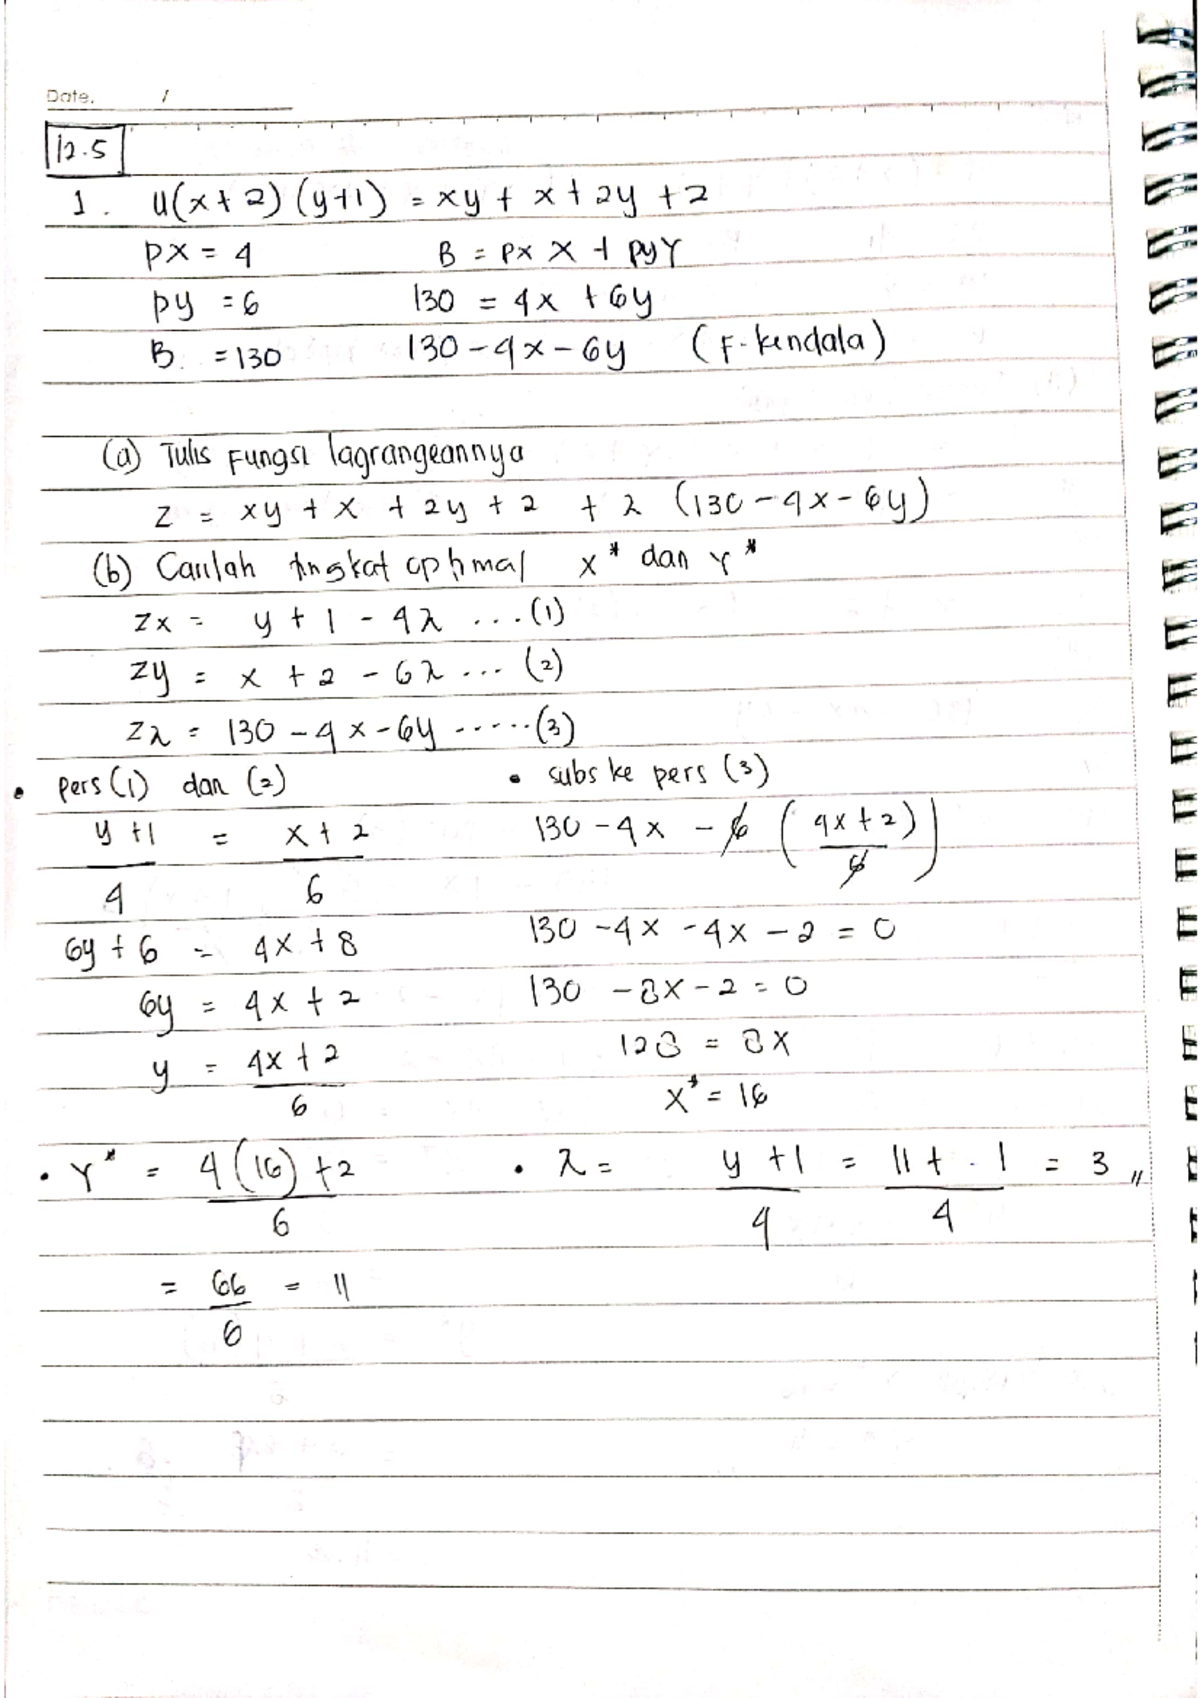 Date. /
12.5
1. U(x+2)(y+1) = xy + x + 2y + 2
Px = 4 B = Px X + Py Y
Py = 6 130 = 4x + 6y
B. = 130 130 - 4x - 6y (F. kendala)
(a) Tulis Fungsi lagrangeannya
Z = xy + x + 2y + 2 + λ (130 - 4x - 6y)
(b) Carilah tingkat optimal x* dan Y*
Zx = y + 1 - 4λ ... (1)
Zy = x + 2 - 6λ ... (2)
Zλ = 130 - 4x - 6y ..... (3)
• pers (1) dan (2)
y + 1 / 4 = x + 2 / 6
6y + 6 = 4x + 8
6y = 4x + 2
y = 4x + 2 / 6
• subs ke pers (3)
130 - 4x - 6 ( 4x + 2 / 6 )
130 - 4x - 4x - 2 = 0
130 - 8x - 2 = 0
128 = 8x
x* = 16
• Y* = 4(16) + 2 / 6
= 66 / 6 = 11
• λ = y + 1 / 4 = 11 + 1 / 4 = 3 //